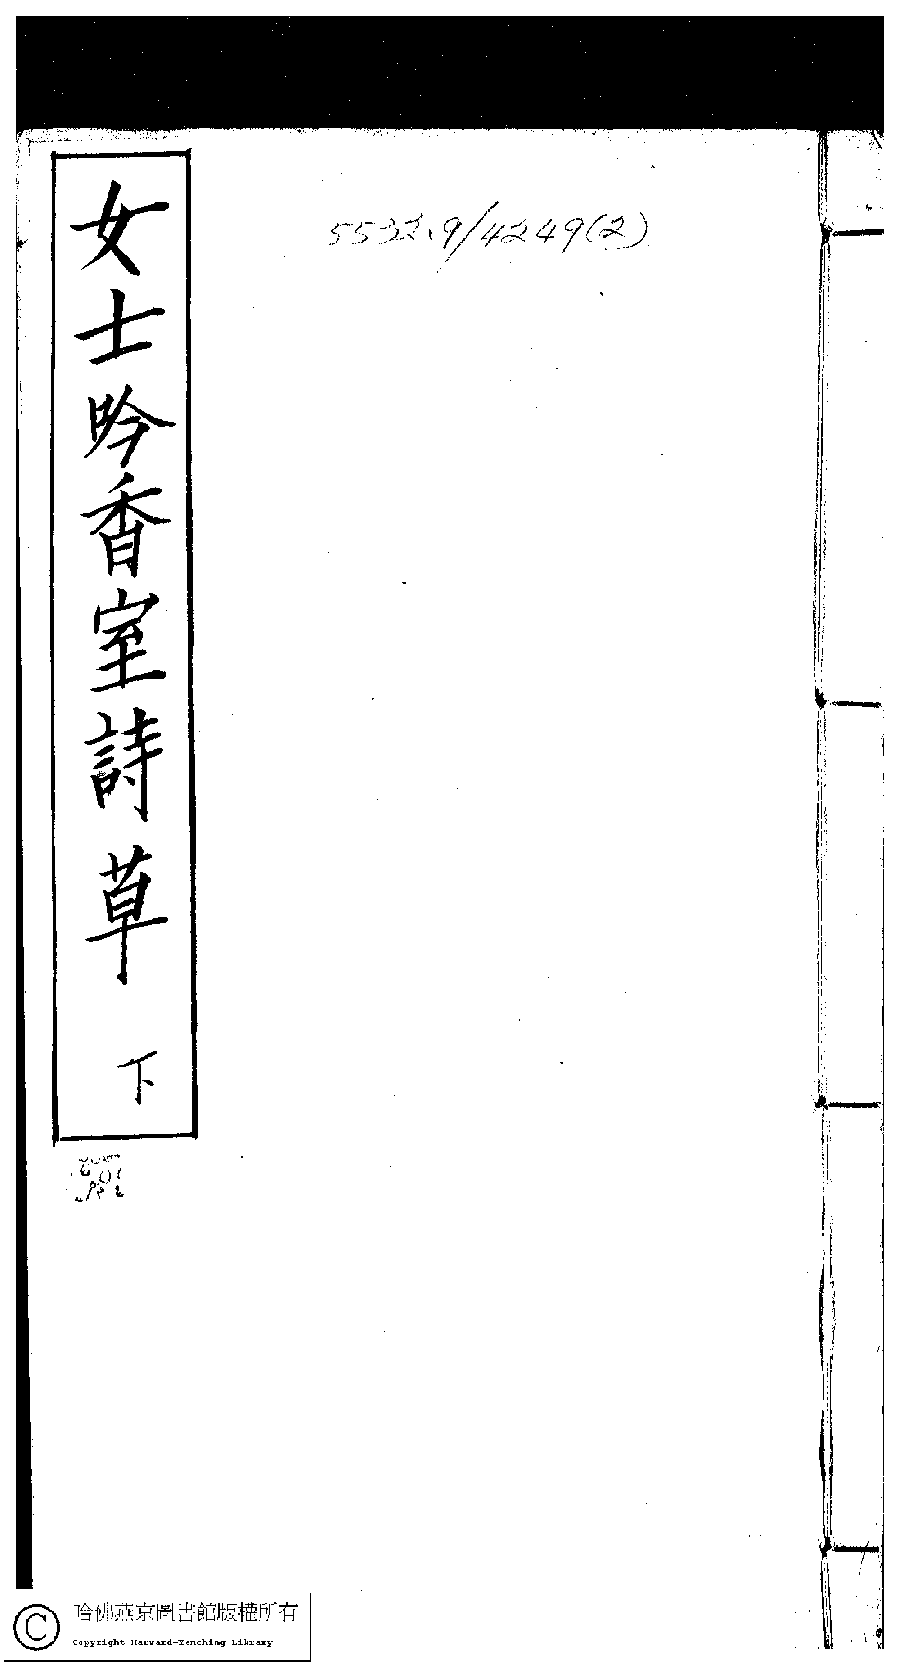 5532.9/4249(2)
女士吟香室詩草 下
哈佛燕京圖書館版權所有
Copyright Harvard-Yenching Library